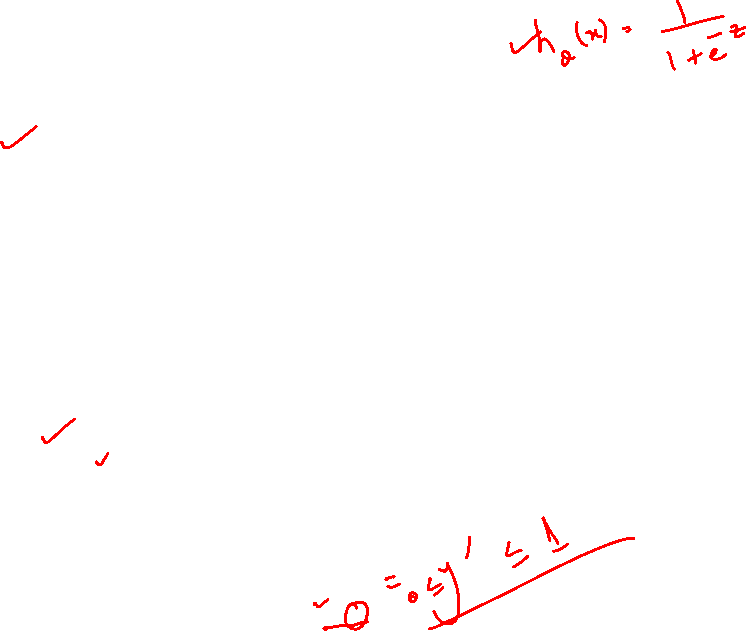 h_θ(x) = 1 / (1 + e^-z)
θ = 0 ≤ y' ≤ 1